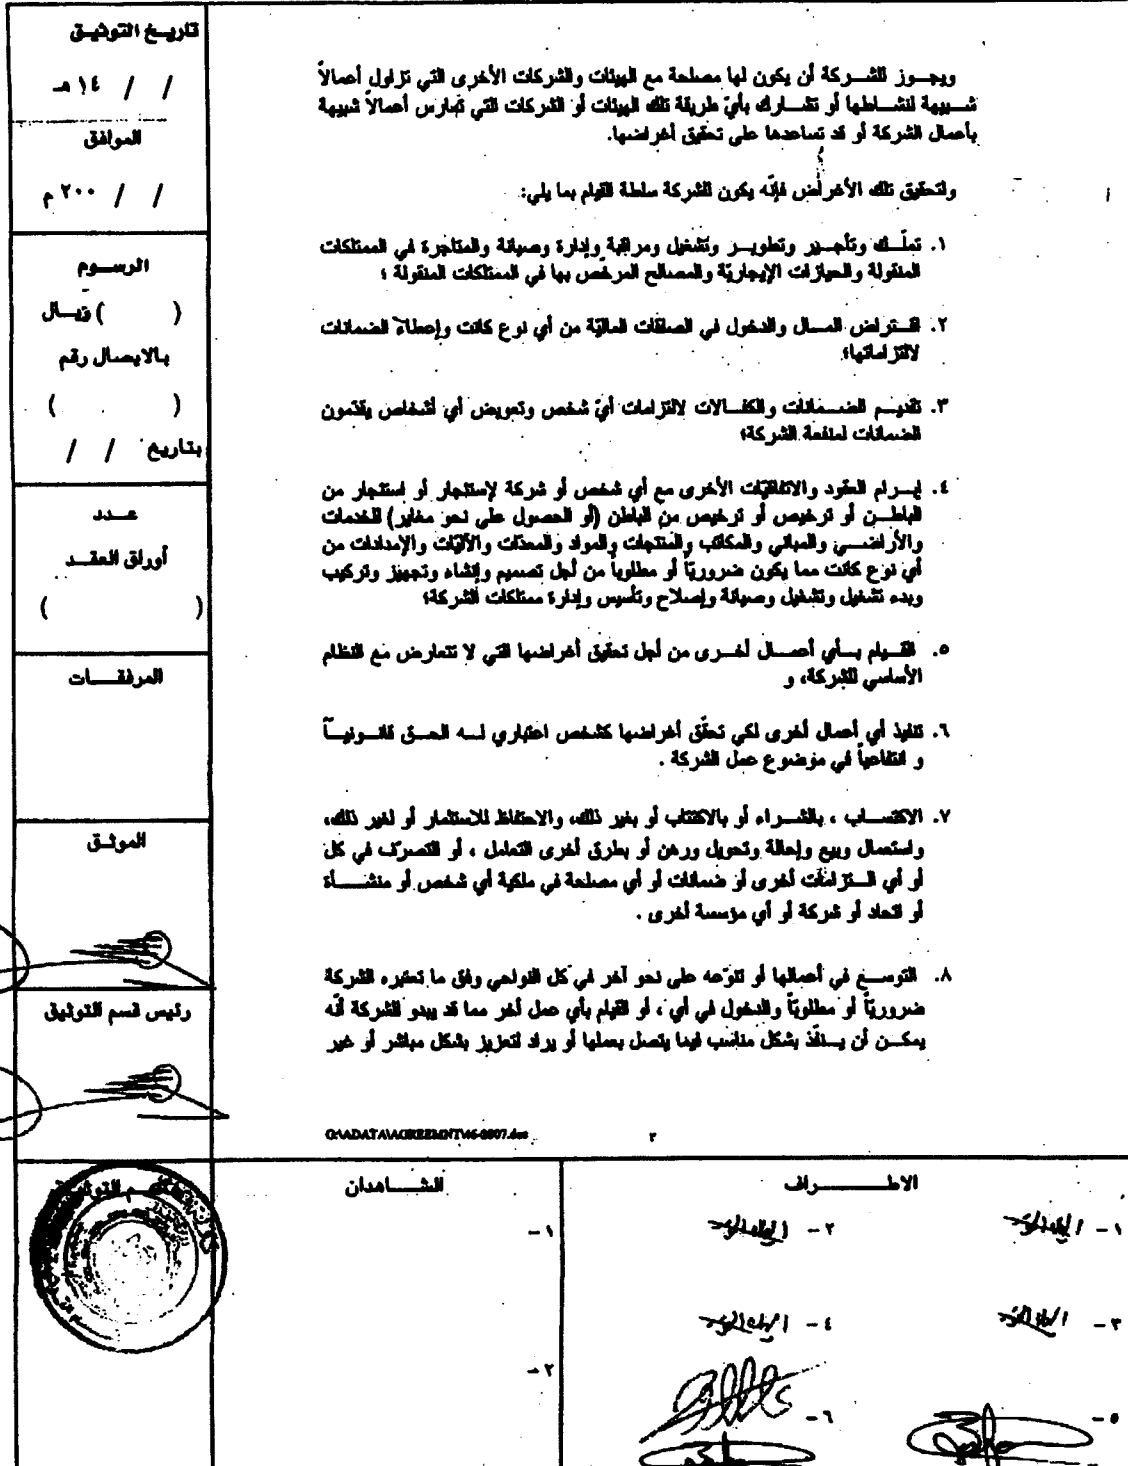 تاريخ التوثيق
/ / ١٤ هـ
الموافق
/ / ٢٠٠ م
الرسوم
( ) ريال
بالايصال رقم
( )
بتاريخ / /
عدد
أوراق العقد
( )
المرفقات
الموثق
رئيس قسم التوثيق
ويجوز للشركة أن يكون لها مصلحة مع الهيئات والشركات الأخرى التي تزاول أعمالاً
شبيهة لنشاطها أو تشارك بأيّ طريقة تلك الهيئات أو الشركات التي تمارس أعمالاً شبيهة
بأعمال الشركة أو قد تساعدها على تحقيق أغراضها.
ولتحقيق تلك الأغراض فإنّه يكون للشركة سلطة القيام بما يلي:
١. تملّك وتأجير وتطوير وتشغيل ومراقبة وإدارة وصيانة والمتاجرة في الممتلكات
المنقولة والحيازات الإيجاريّة والمصالح المرخّص بها في الممتلكات المنقولة ؛
٢. اقتراض المال والدخول في الصفقات الماليّة من أي نوع كانت وإعطاء الضمانات
لالتزاماتها؛
٣. تقديم الضمانات والكفالات لالتزامات أيّ شخص وتعويض أي أشخاص يقدّمون
الضمانات لمنفعة الشركة؛
٤. إبرام العقود والاتفاقيّات الأخرى مع أي شخص أو شركة لإستئجار أو استئجار من
الباطن أو ترخيص أو ترخيص من الباطن (أو الحصول على نحو مغاير) للخدمات
والأراضي والمباني والمكاتب والمنتجات والمواد والمعدّات والآليّات والإمدادات من
أي نوع كانت مما يكون ضروريّاً أو مطلوباً من أجل تصميم وإنشاء وتجهيز وتركيب
وبدء تشغيل وتشغيل وصيانة وإصلاح وتأسيس وإدارة ممتلكات الشركة؛
٥. القيام بأي أعمال أخرى من أجل تحقيق أغراضها التي لا تتعارض مع النظام
الأساسي للشركة، و
٦. تنفيذ أي أعمال أخرى لكي تحقّق أغراضها كشخص اعتباري له الحق قانونياً
و انتفاعياً في موضوع عمل الشركة .
٧. الاكتساب ، بالشراء أو بالاكتتاب أو بغير ذلك، والاحتفاظ للاستثمار أو لغير ذلك،
واستعمال وبيع وإحالة وتحويل ورهن أو بطرق أخرى التعامل ، أو التصرّف في كل
أو أي التزامات أخرى أو ضمانات أو أي مصلحة في ملكية أي شخص أو منشأة
أو اتحاد أو شركة أو أي مؤسسة أخرى .
٨. التوسع في أعمالها أو تنوّعه على نحو آخر في كل النواحي وفق ما تعتبره الشركة
ضروريّاً أو مطلوبّاً والدخول في أي ، أو القيام بأي عمل أخر مما قد يبدو للشركة أنّه
يمكن أن ينفّذ بشكل مناسب فيما يتصل بعملها أو يراد لتعزيز بشكل مباشر أو غير
٣
الاطراف
١ -
٢ -
٣ -
٤ -
٥ -
٦ -
الشاهدان
١ -
٢ -